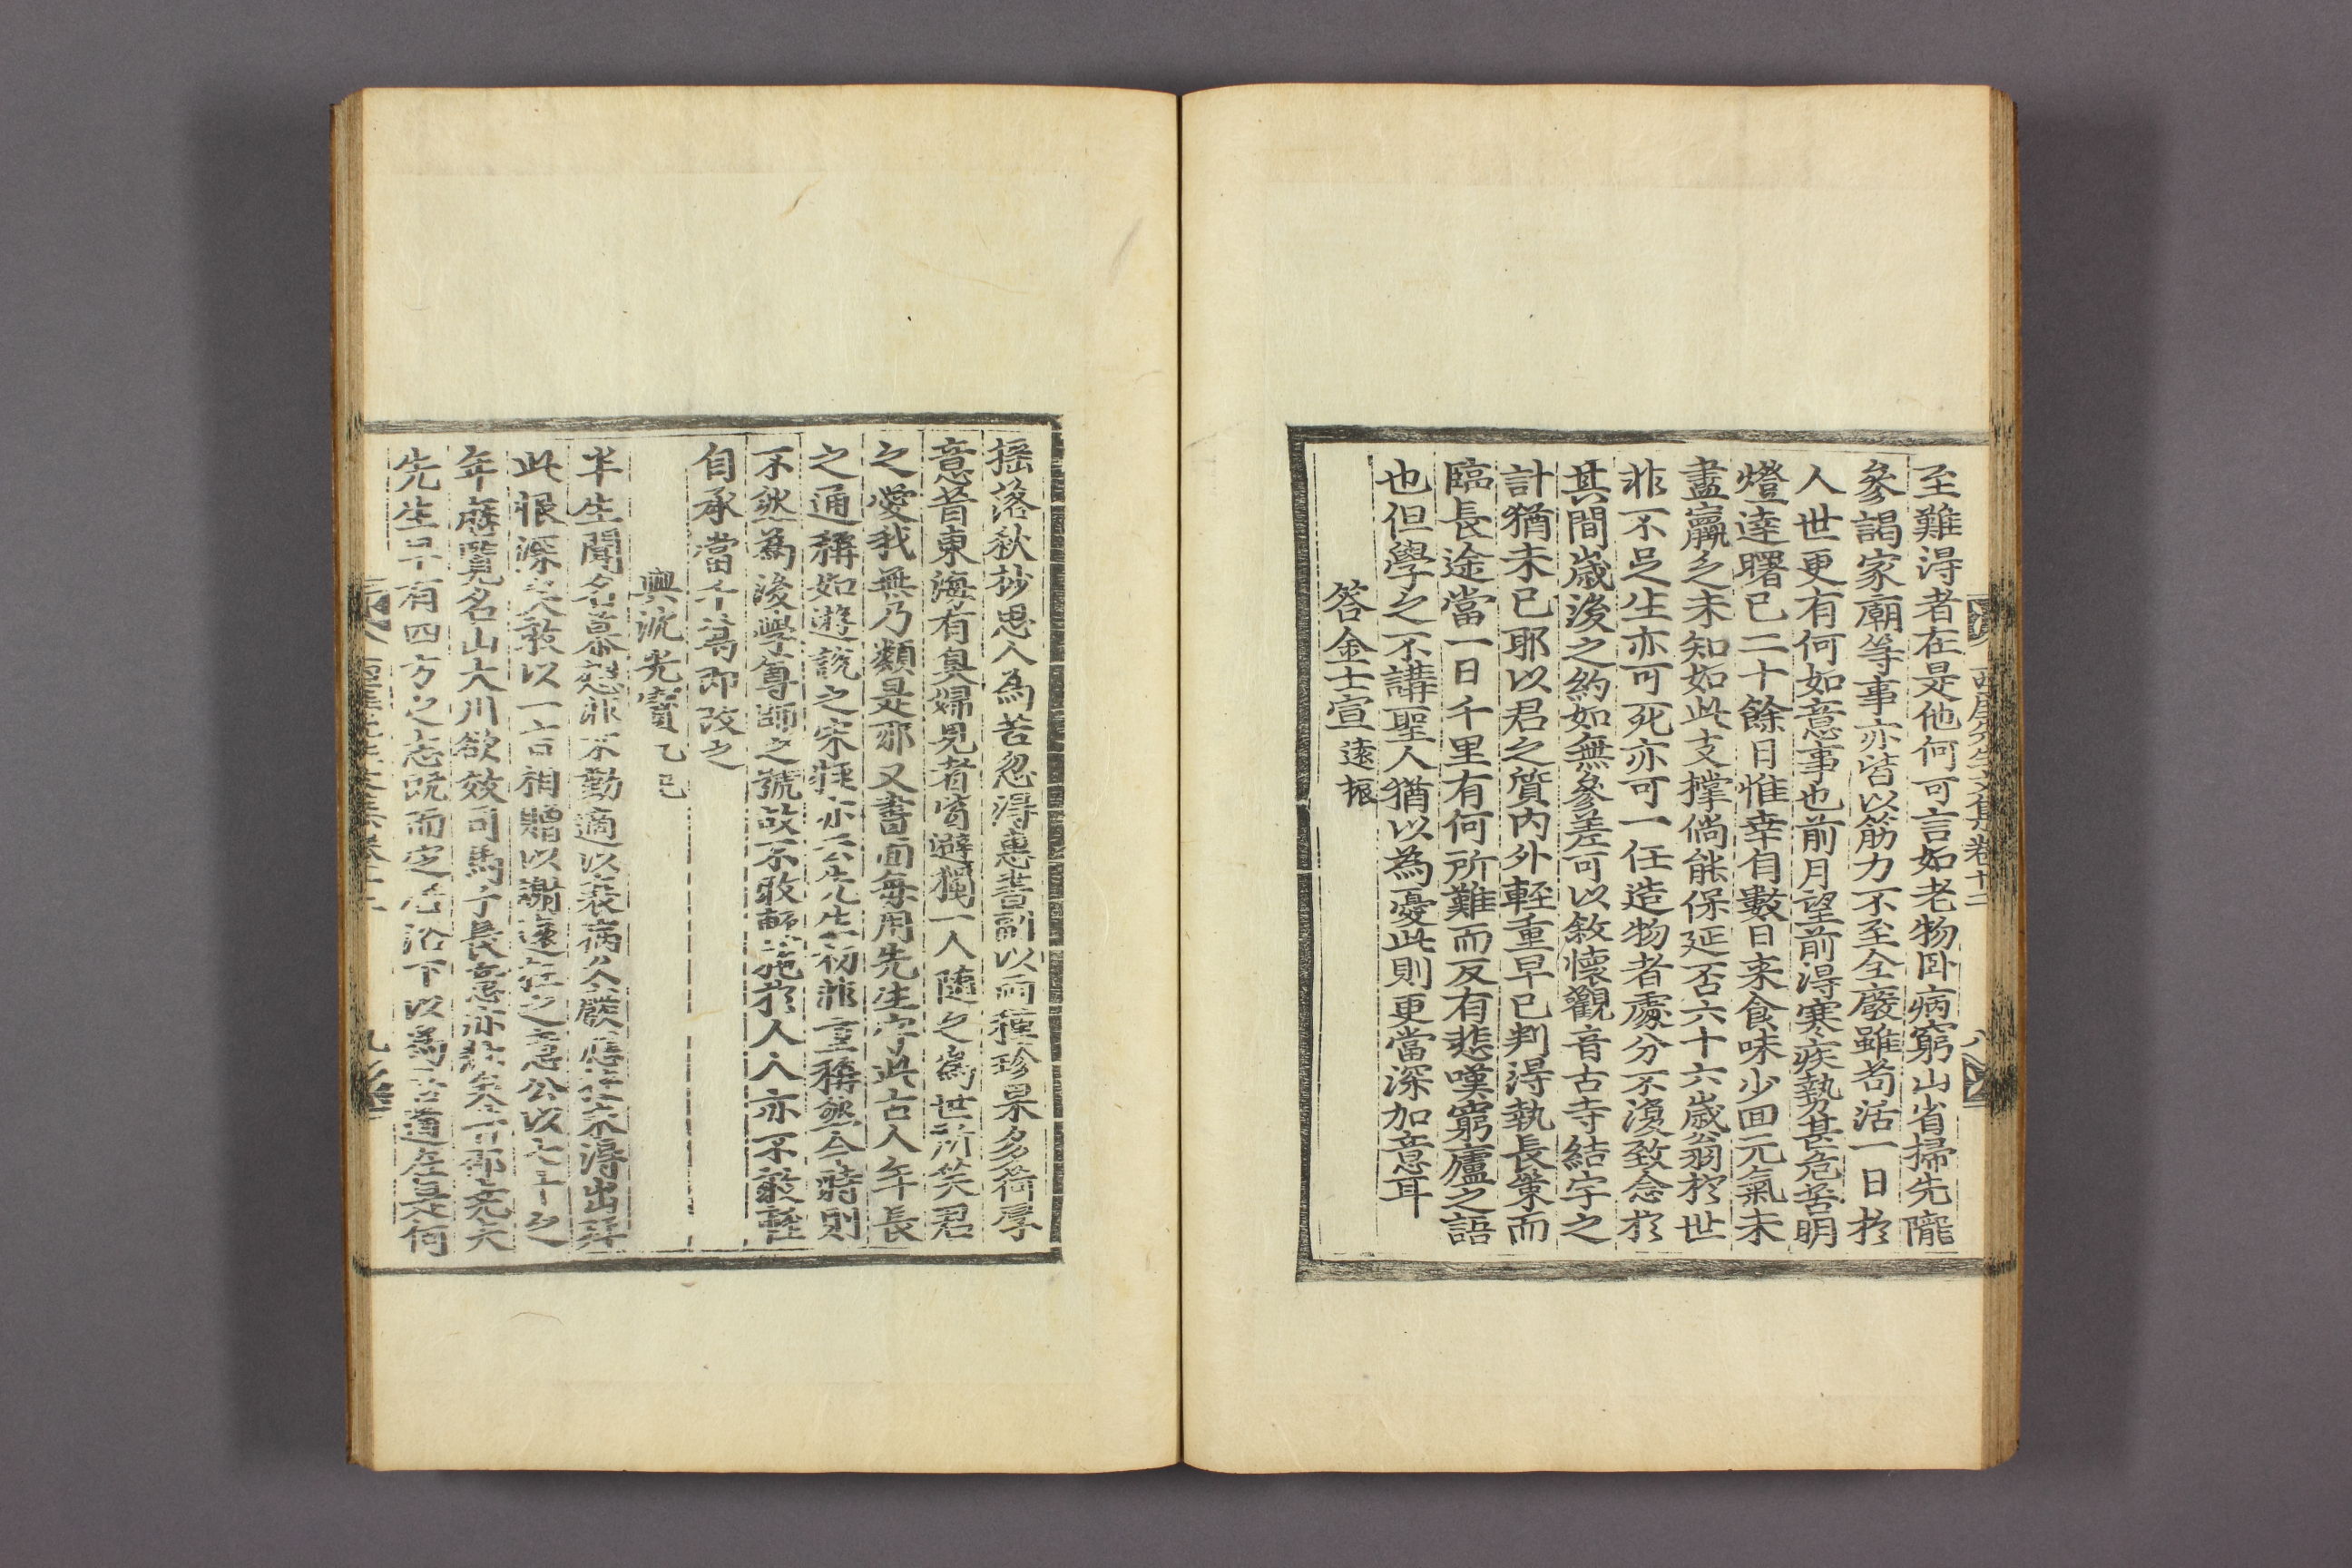 至難得者在是他何可言如老物卧病窮山省掃先隴
參謁家廟等事亦皆以筋力不至全廢雖苟活一日於
人世更有何如意事也前月望前得寒疾勢甚危苦明
燈達曙已二十餘日惟幸自數日来食味少回元氣未
盡羸乏未知如此支撑倘能保延否六十六歲翁於世
非不足生亦可死亦可一任造物者處分不復致念於
其間歲後之約如無參差可以敘懷觀音古寺結字之
計猶未已耶以君之質内外輕重早已判得執長策而
臨長途當一日千里有何所難而反有悲嘆窮廬之語
也但學之不講聖人猶以為憂此則更當深加意耳
答金士宣遠振
摇落秋抄思人為苦忽得惠書副以兩種珍果多荷厚
意昔東海有臭婦見者皆避獨一人隨之為世所笑君
之愛我無乃類是耶又書面每用先生字此古人年長
之通稱如遊說之宋牼亦云先生初非重稱然今時則
不然為後學尊師之號故不敢輒施於人人亦不敢輒
自承當千萬即改之
與沈光實乙巳
半生聞名景慕非不勤適以衰病公嚴程未得出拜
此恨深矣敢以一言相贈以謝遠在之意公以七十之
年歷覽名山大川欲效司馬子長意亦壯矣昔邵堯夫
先生早有四方之志既而定居洛下以為吾道在是何
西厓先生文集卷十二 八